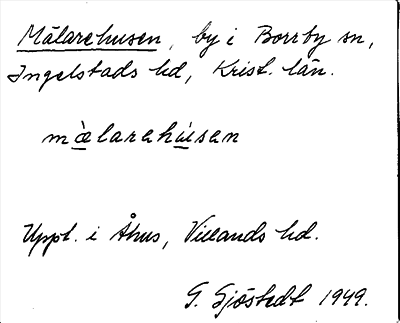 Mälarehusen, by i Borrby sn,
Ingelstads hd, Krist. län.
mæ̀larehúsen
Uppt. i Åhus, Villands hd.
G. Sjöstedt 1949.